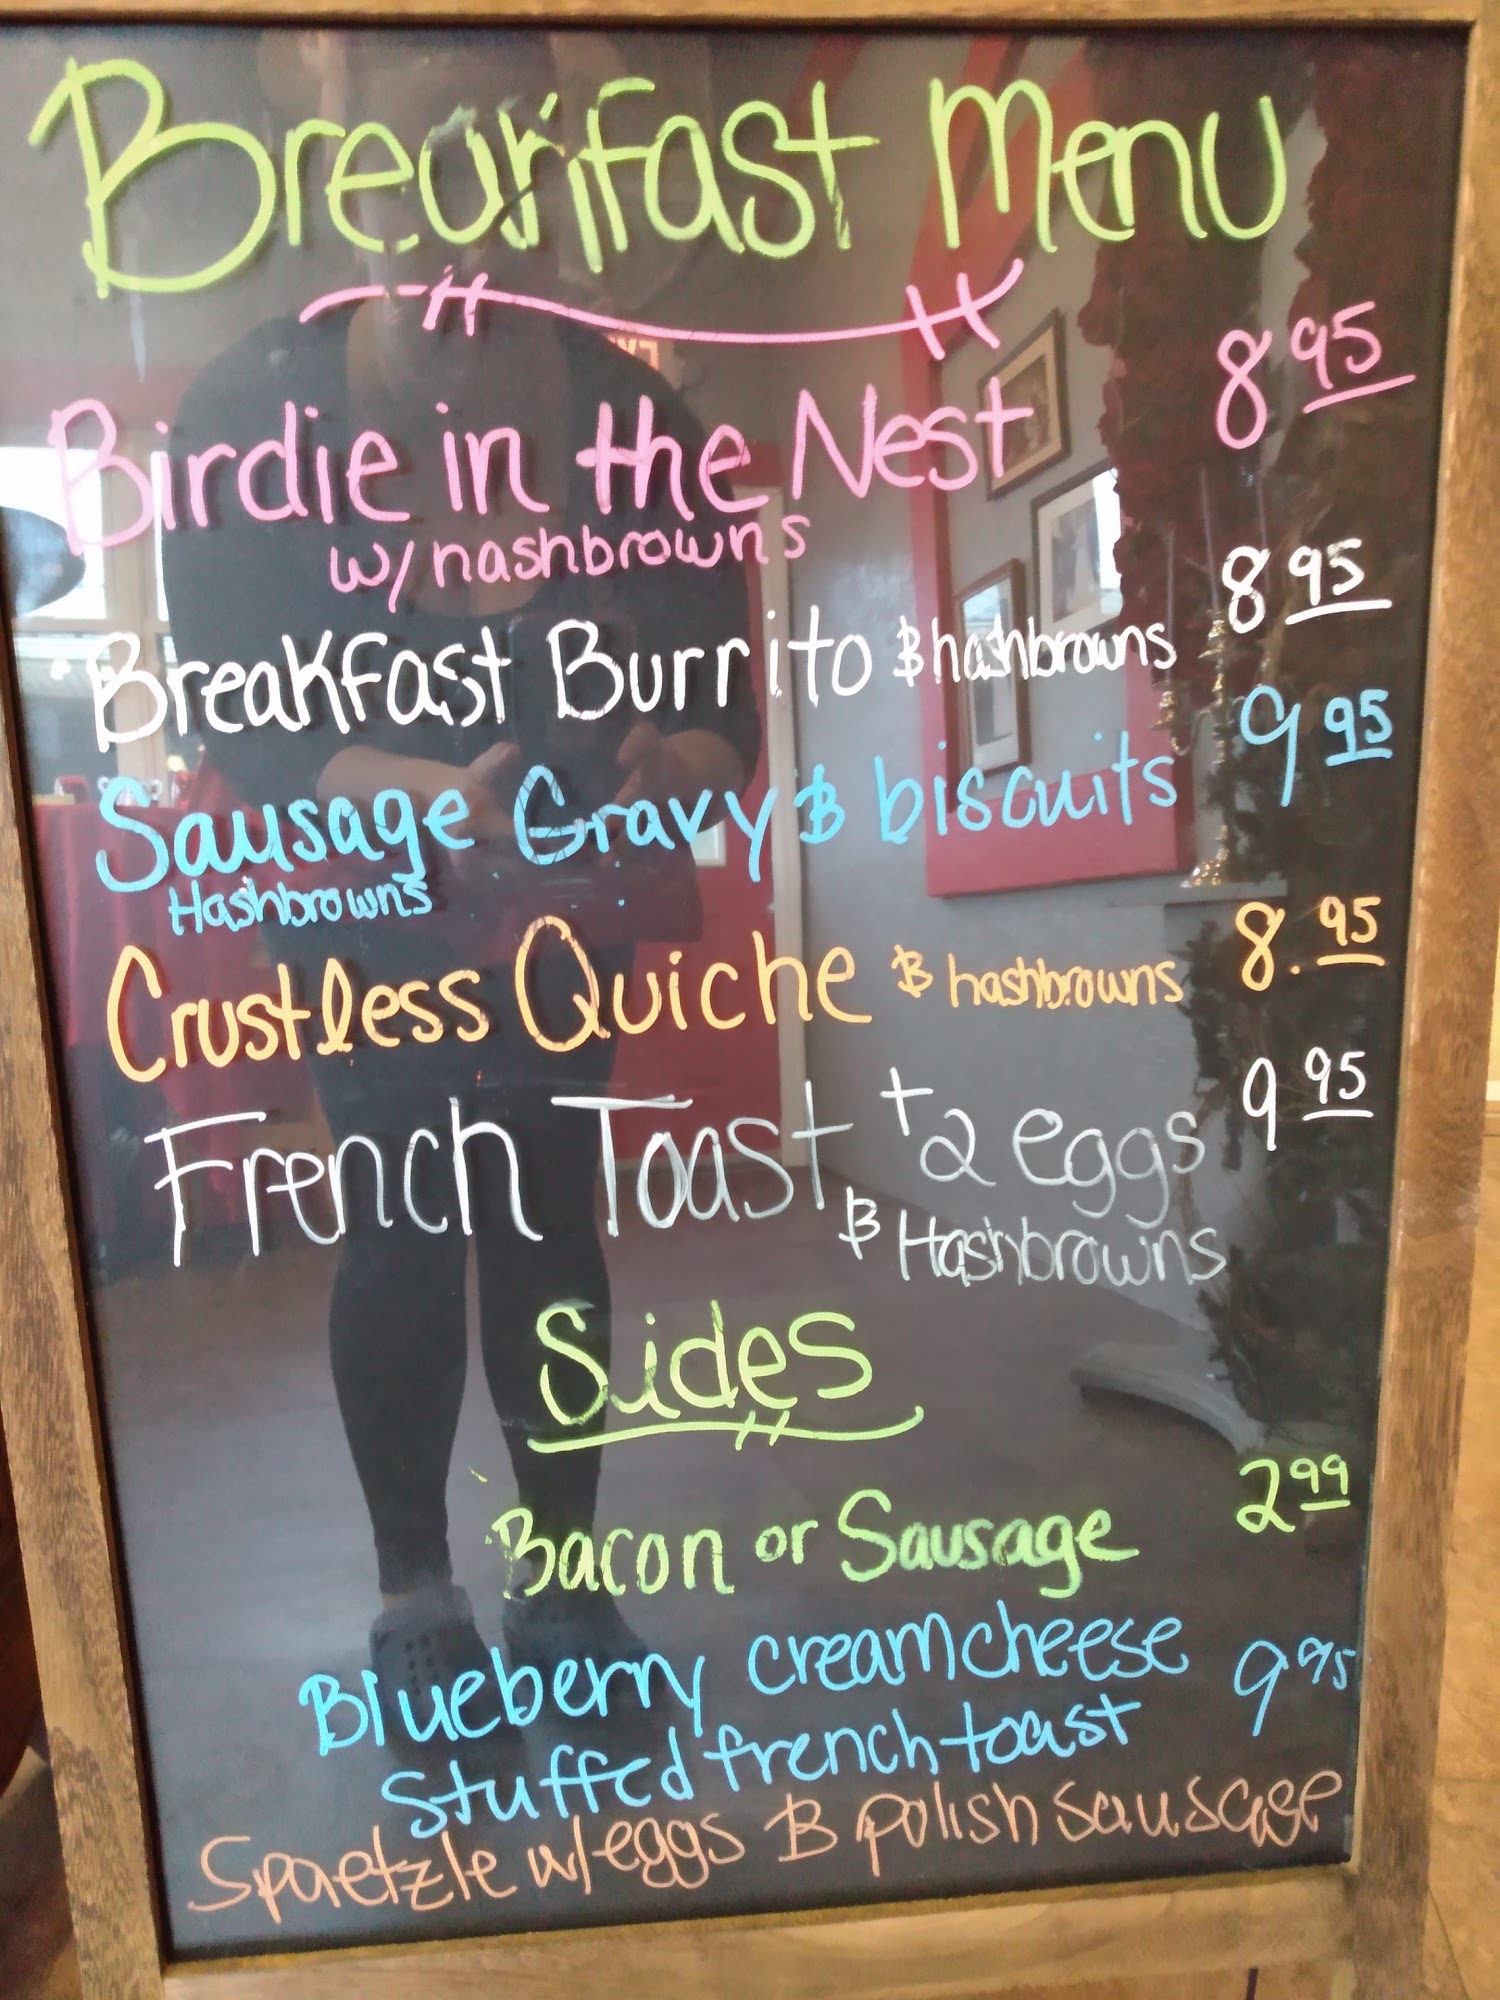 Breakfast Menu
Birdie in the Nest 8 95
w/ hashbrowns
Breakfast Burrito & hashbrowns 8 95
Sausage Gravy & biscuits 9 95
Hashbrowns
Crustless Quiche & hashbrowns 8.95
French Toast + 2 eggs 9 95
& Hashbrowns
Sides
Bacon or Sausage 2 99
Blueberry creamcheese 9 95
Stuffed french toast
Spaetzle w/ eggs & polish sausage